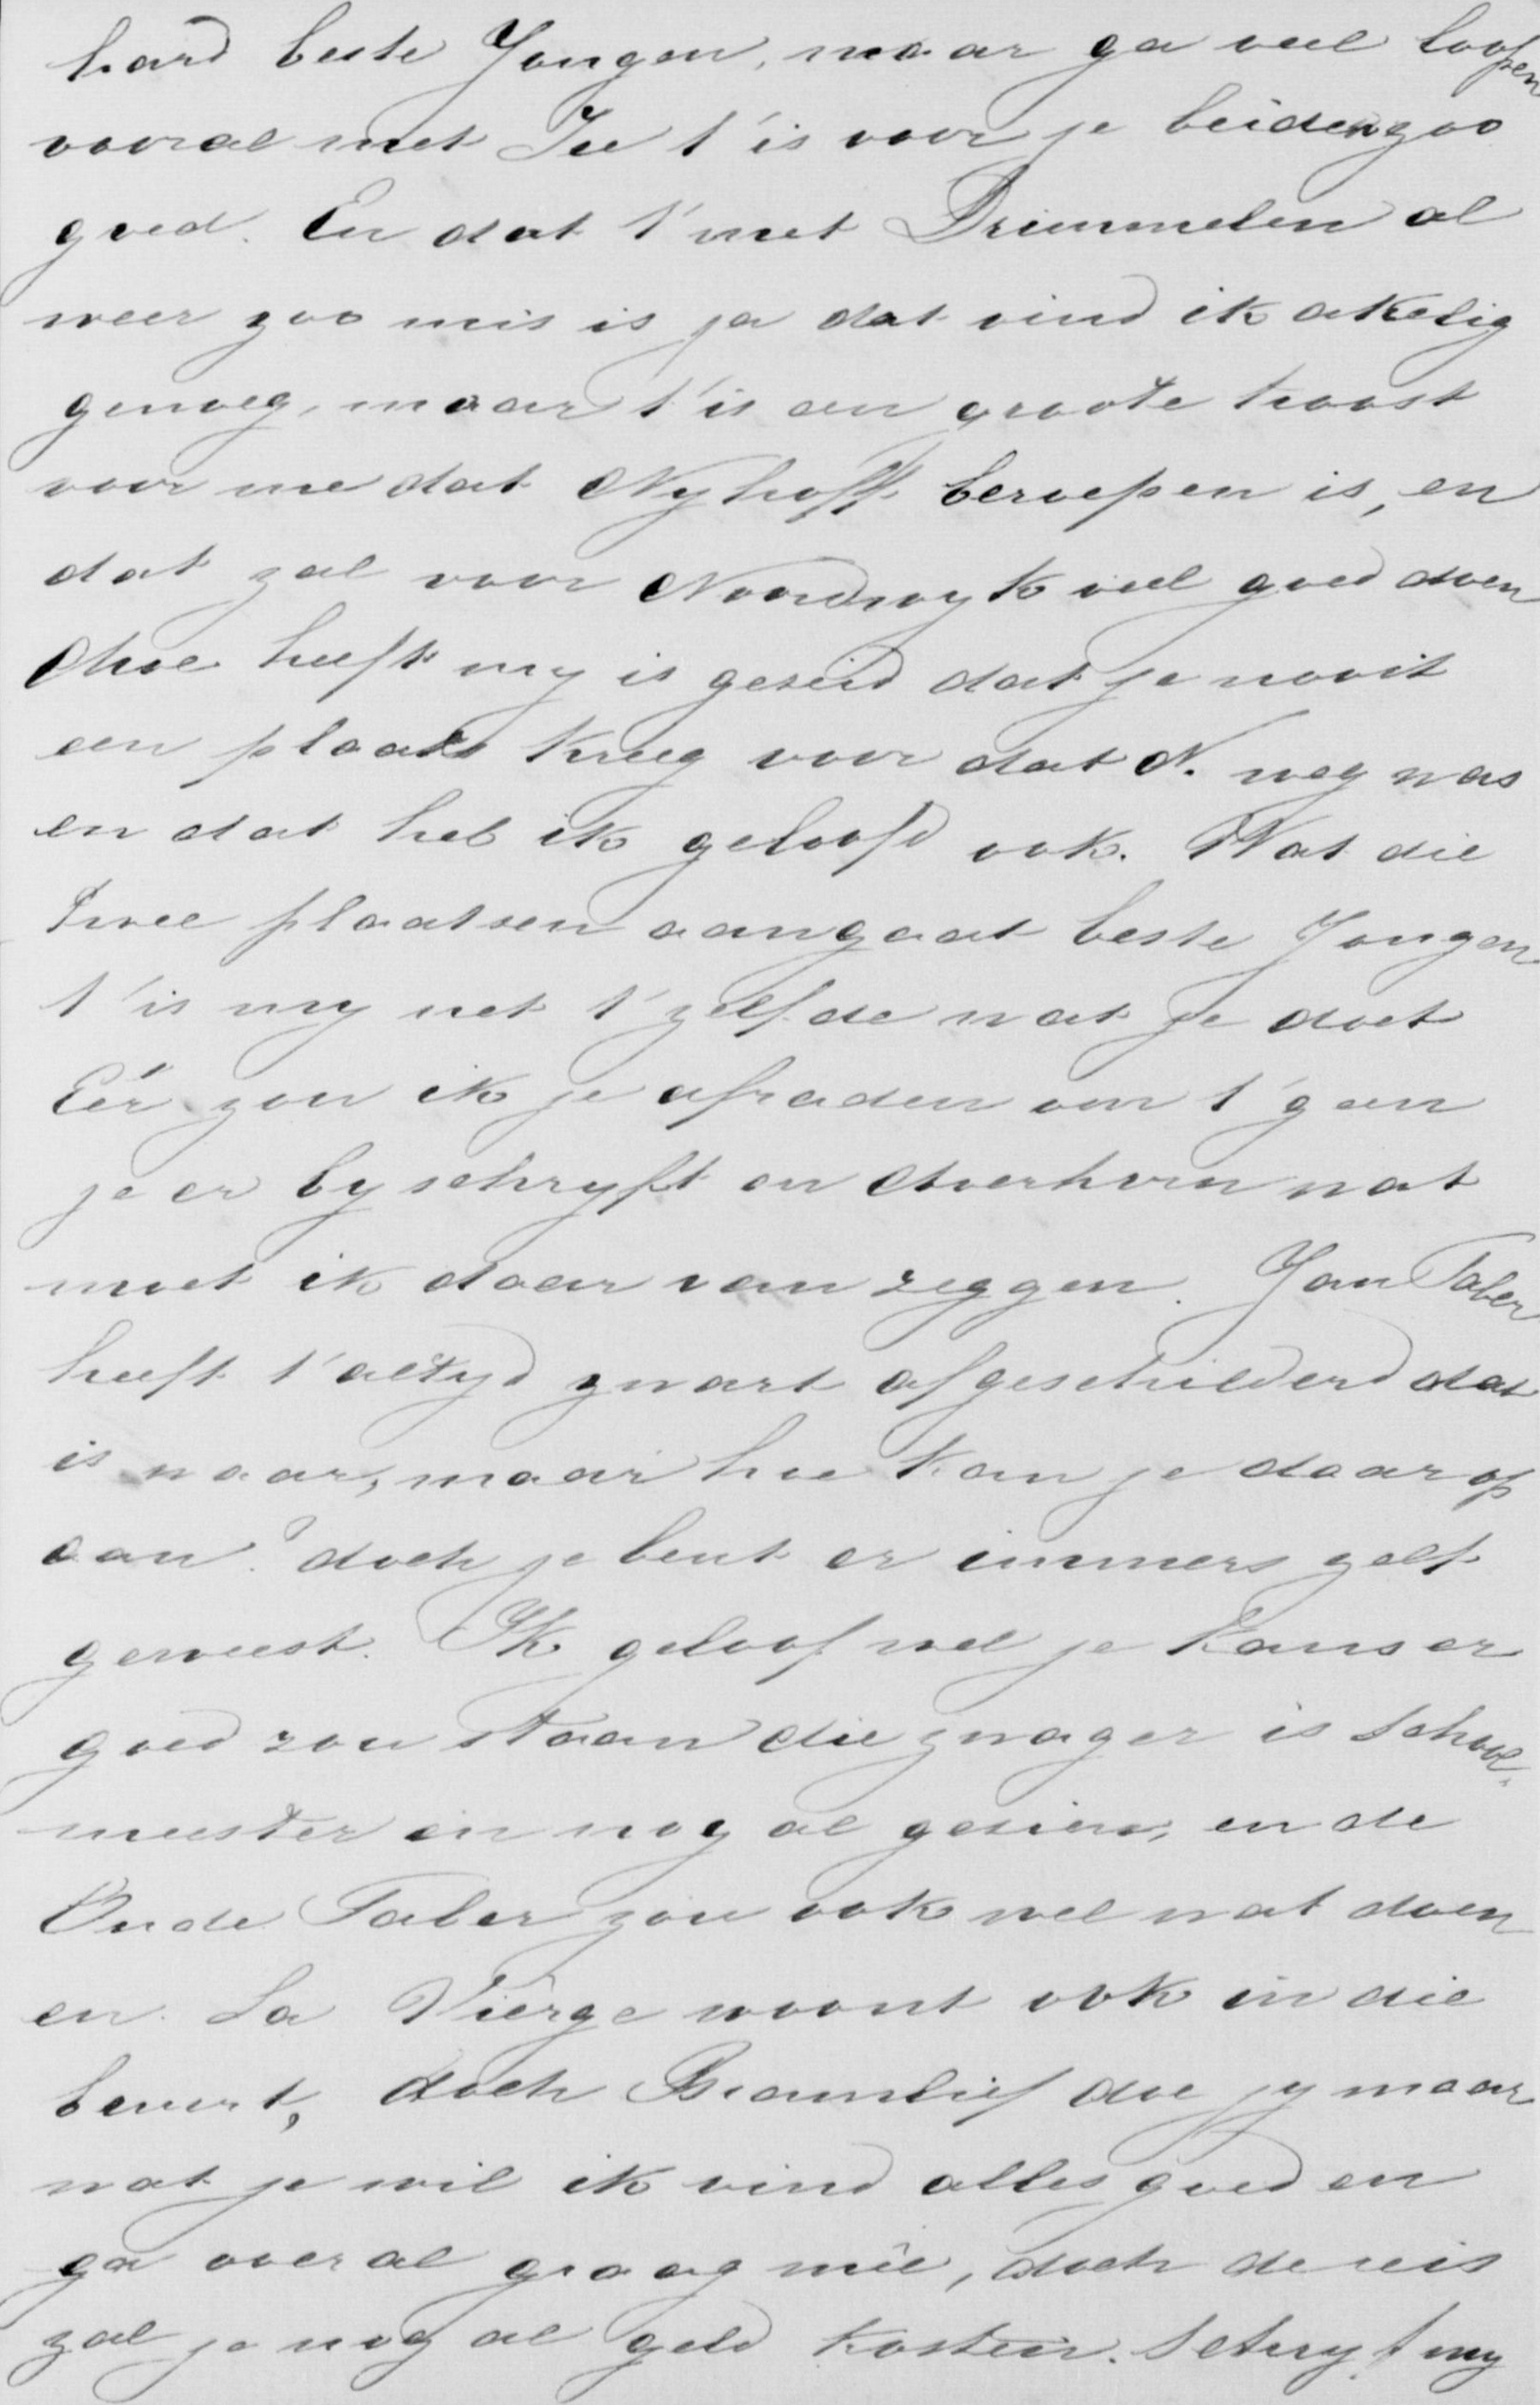 hard beste Jongen, maar ga veel loopen
vooral met Ite t'is voor je beiden zoo
goed. En dat t'met Drimmelen al
weer zoo mis is ja dat vind ik akelig
genoeg, maar t'is een groote troost
voor me dat Nyhoff beroepen is, en
dat zal voor Noordwyk veel goed doen
heeft my is geseid dat je nooit
een plaats kreeg voor dat N. weg was
en dat heb ik geloofd ook. Wat die
twee plaatsen aangaat beste Jongen
t'is my net t'zelfde wat je doet
Eér zou ik je afraden om t'geen
je er by schryft en wat
moet ik daar van zeggen. Jan Faber
heeft t'altyd zwart afgeschilderd dat
is waar, maar hoe kan je daar op
aan? doch je bent er immers zelf
geweest. Ik geloof wel je kans er
goed zou staan die zwager is school-
meester en nog al gezien, en de
Oude Faber zou ook wel wat doen
en La Vièrge woont ook in die
beurt, doch Bramlief doe jy maar
wat je wil ik vind alles goed en
ga overal graag meê, doch de reis
zal je nog al geld kosten. Schryf my